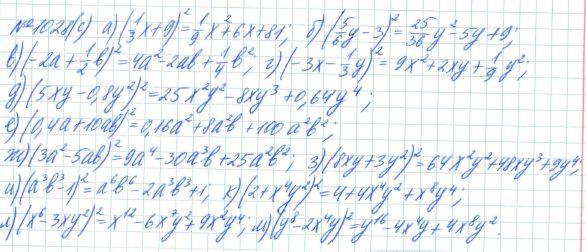 №1028(с) а) (1/3x+9)²=1/9x²+6x+81; б) (5/6y-3)²=25/36y²-5y+9;
в) (-2a+1/2b)²=4a²-2ab+1/4b²; г) (-3x-1/3y)²=9x²+2xy+1/9y²;
д) (5xy-0,8y²)²=25x²y²-8xy³+0,64y⁴;
е) (0,4a+10ab)²=0,16a²+8a²b+100a²b²;
ж) (3a²-5ab)²=9a⁴-30a³b+25a²b²; з) (8xy+3y²)²=64x²y²+48xy³+9y⁴;
и) (a³b³-1)²=a⁶b⁶-2a³b³+1; к) (2+x⁴y²)²=4+4x⁴y²+x⁸y⁴;
л) (x⁶-3xy²)²=x¹²-6x⁷y²+9x²y⁴; м) (y⁸-2x⁴y)²=y¹⁶-4x⁴y+4x⁸y².